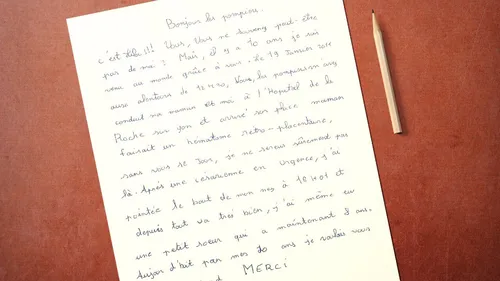 Bonjour les pompiers.
c'est Lilia!! Vous, Vous ne saurez peut-être
pas de moi! Mais, il y a 10 ans je suis
venu au monde grâce à vous. Le 19 Janvier 2011
aux alentours de 12 h 30, Vous, les pompiers avez
conduit ma maman et moi à l'Hopital de la
Roche sur yon et arrivé sur place maman
faisait un hématome rétro-placentaire,
sans vous ce jour, je ne serais sûrement pas
là. Après une césarienne en urgence, j'ai
pointée le bout de mon nez à 12h01 et
depuis tout va très bien, j'ai même eu
une petite soeur qui a maintenant 8 ans.
Aujourd'hui par mes 10 ans je voulais vous
MERCI